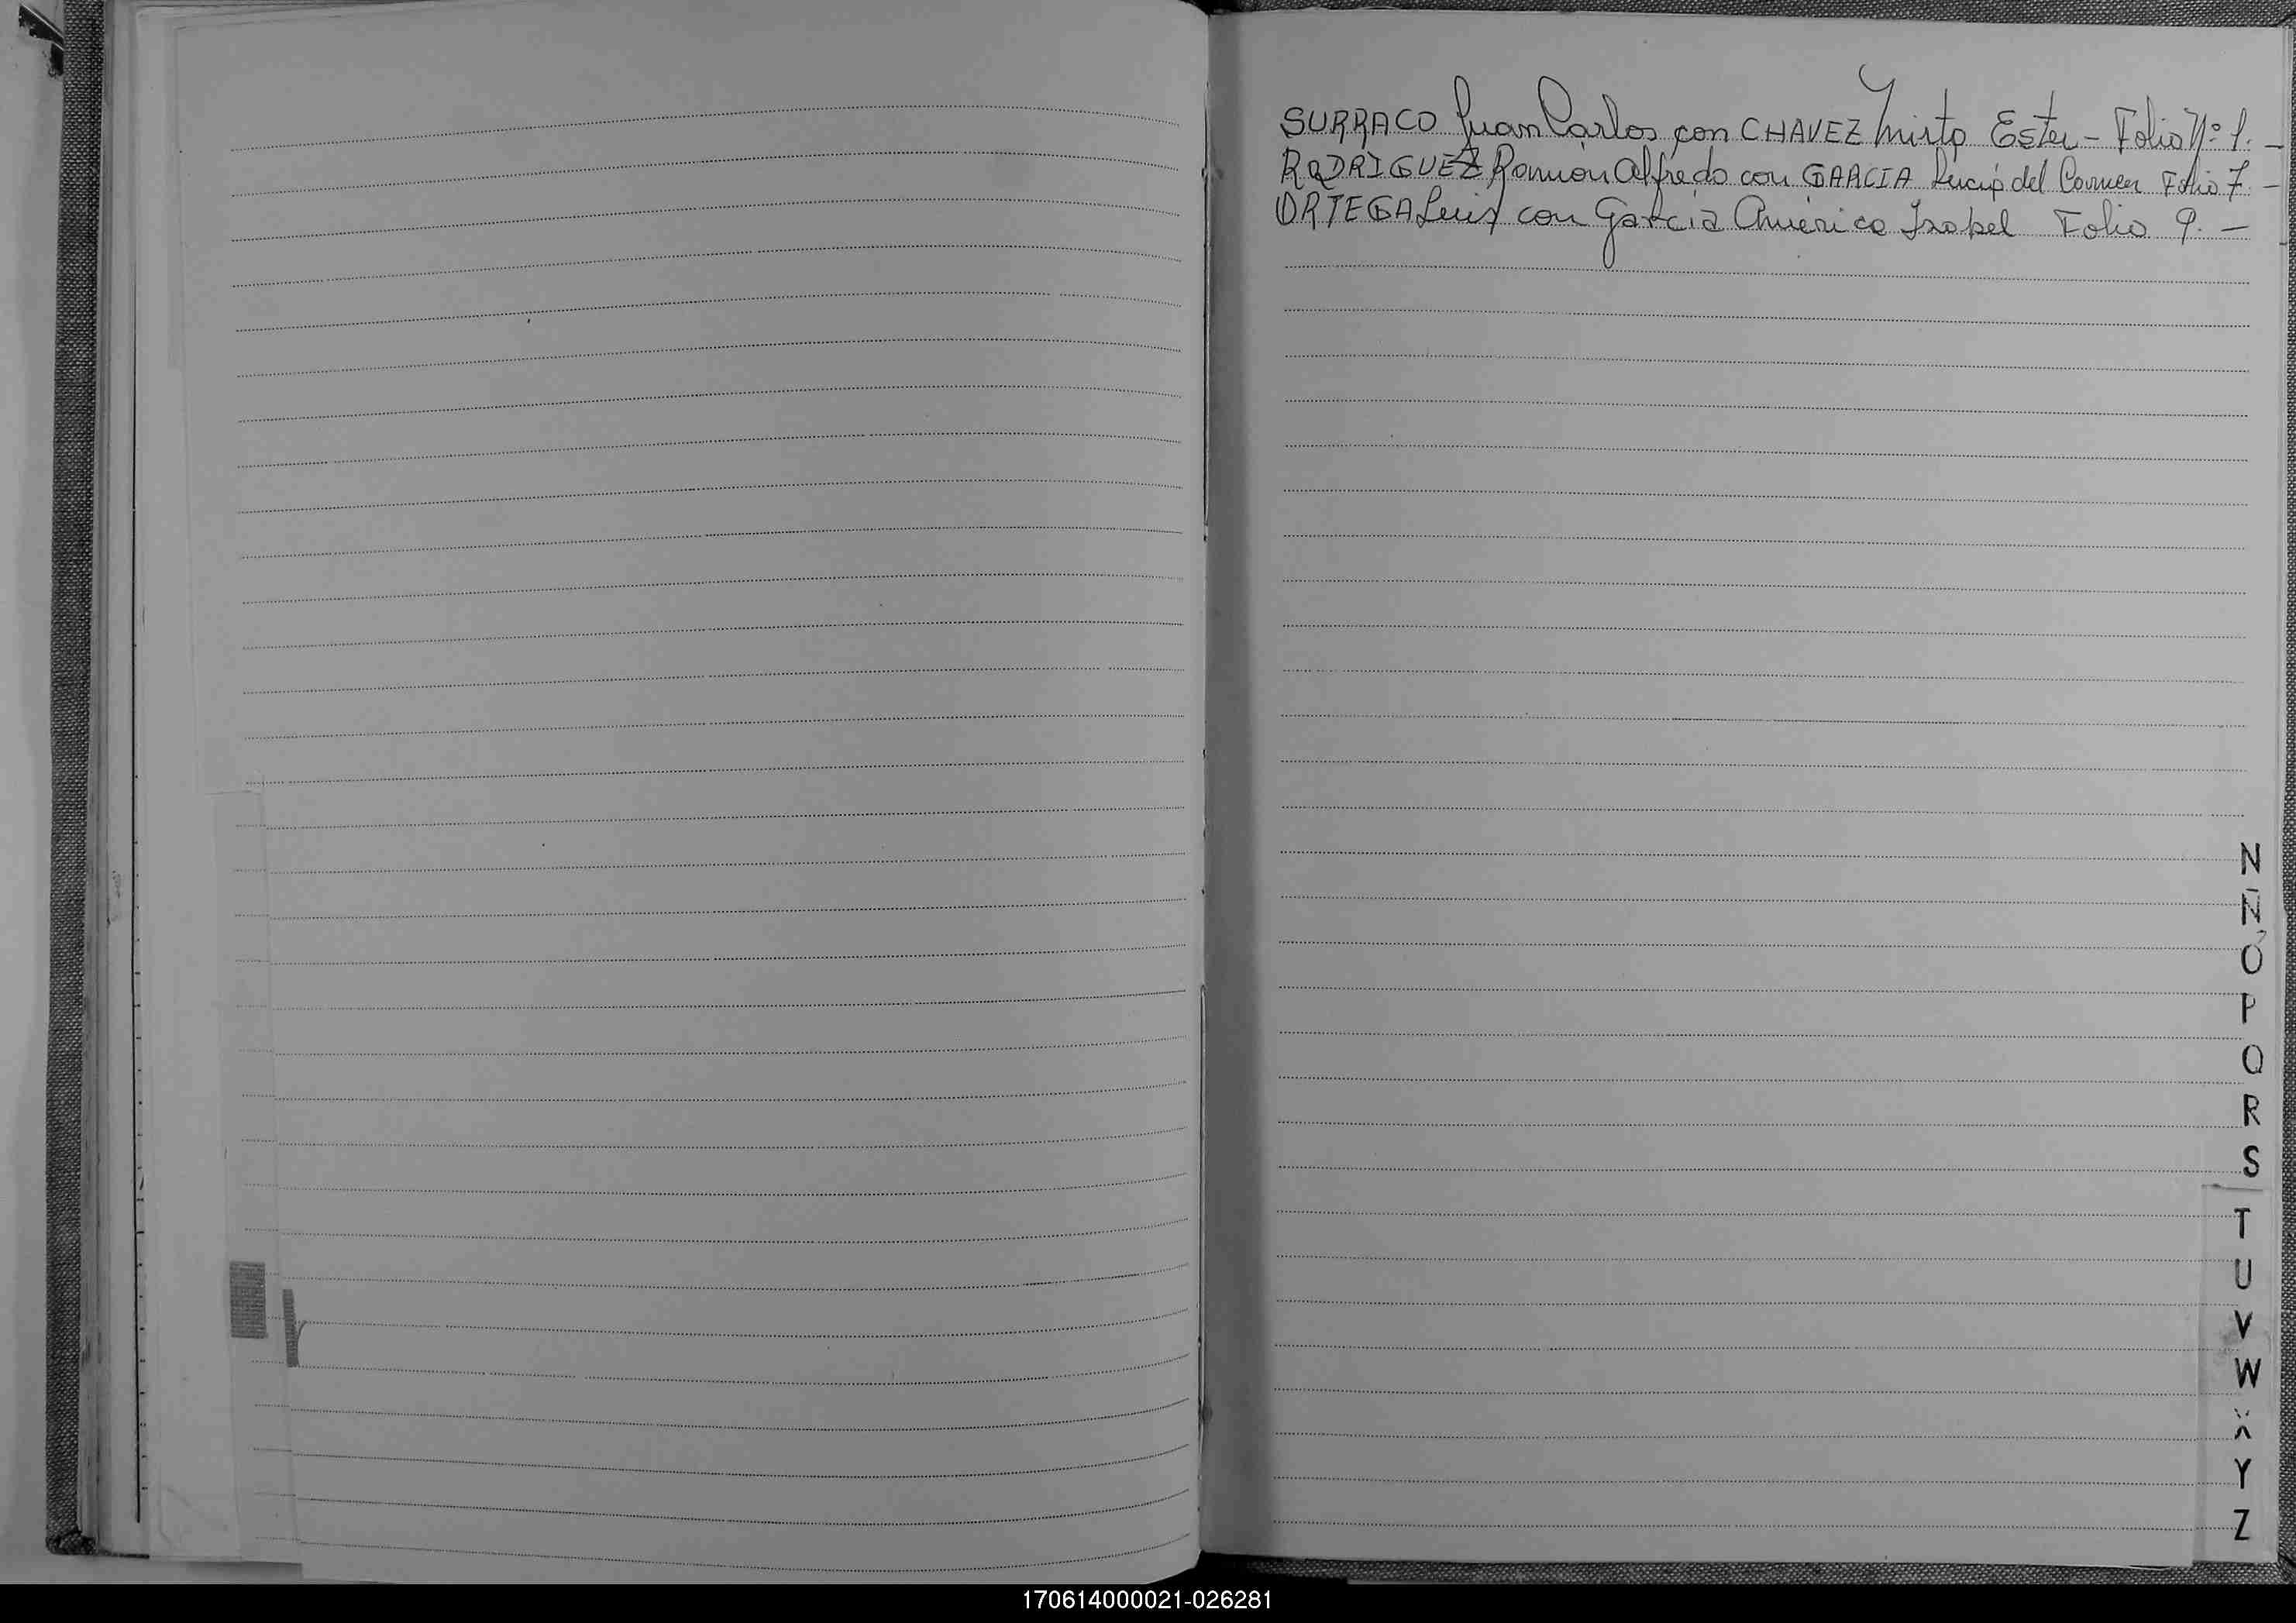 SURRACO Juan Carlos con CHAVEZ Mirta Ester - Folio Nº 1. -
RODRIGUEZ Ramón Alfredo con GARCIA Lucía del Carmen Folio 7 -
ORTEGA Luis con García América Isabel Folio 9. -
N
Ñ
O
P
Q
R
S
T
U
V
W
X
Y
Z
170614000021-026281